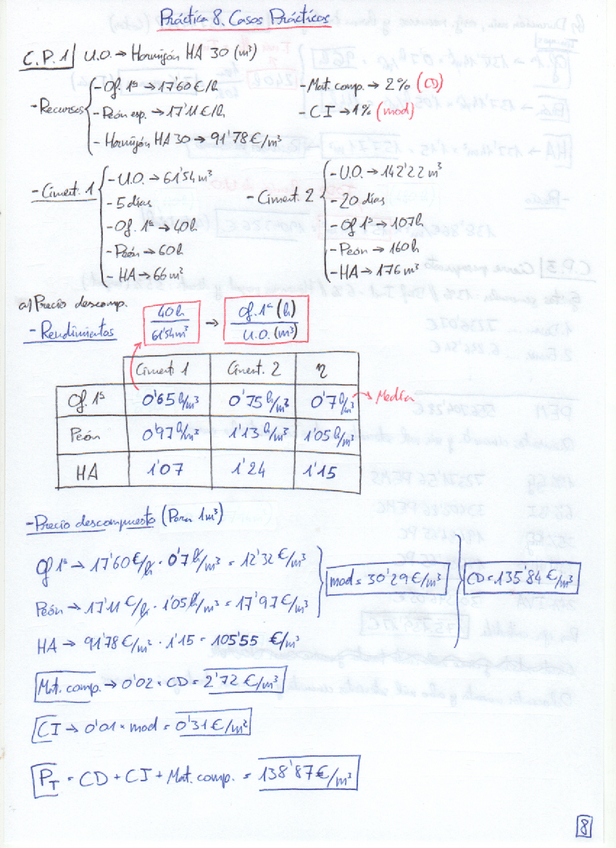 Práctica 8. Casos Prácticos
C.P.1 U.O. → Hormigón HA 30 (m³)
- Recursos
- Of. 1ª → 17'60 €/h
- Peón esp. → 17'11 €/h
- Hormigón HA 30 → 91'78 €/m³
- Mat. comp. → 2% (CD)
- CI → 1% (mod)
- Ciment. 1
- U.O. → 61'54 m³
- 5 días
- Of. 1ª → 40h
- Peón → 60h
- HA → 66 m³
- Ciment. 2
- U.O. → 142'22 m³
- 20 días
- Of. 1ª → 107h
- Peón → 160h
- HA → 176 m³
a) Precio descomp.
- Rendimientos
40h / 61'54m³ → Of. 1ª (h) / U.O. (m³)
Ciment 1 Ciment. 2 η
Of. 1ª 0'65 h/m³ 0'75 h/m³ 0'7 h/m³ → Media
Peón 0'97 h/m³ 1'13 h/m³ 1'05 h/m³
HA 1'07 1'24 1'15
- Precio descompuesto (Para 1m³)
Of 1ª → 17'60 €/h · 0'7 h/m³ = 12'32 €/m³
Peón → 17'11 €/h · 1'05 h/m³ = 17'97 €/m³
mod = 30'29 €/m³
CD = 135'84 €/m³
HA → 91'78 €/m³ · 1'15 = 105'55 €/m³
Mat. comp. → 0'02 × CD = 2'72 €/m³
CI → 0'01 × mod = 0'31 €/m³
PT = CD + CI + Mat. comp. = 138'87 €/m³
8